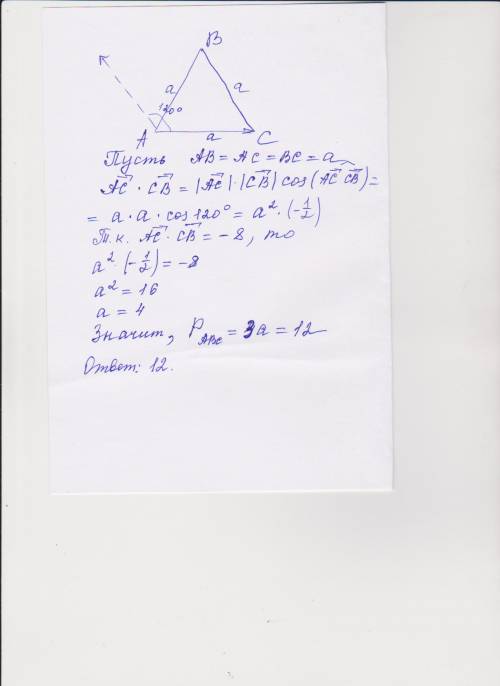 B
a a
120°
A a C
Пусть AB = AC = BC = a
AC⃗ · CB⃗ = |AC⃗| · |CB⃗| cos(AC⃗ CB⃗) =
= a · a · cos 120° = a² · (-1/2)
Т.к. AC⃗ · CB⃗ = -8, то
a² · (-1/2) = -8
a² = 16
a = 4
Значит, P_ABC = 3a = 12
Ответ: 12.